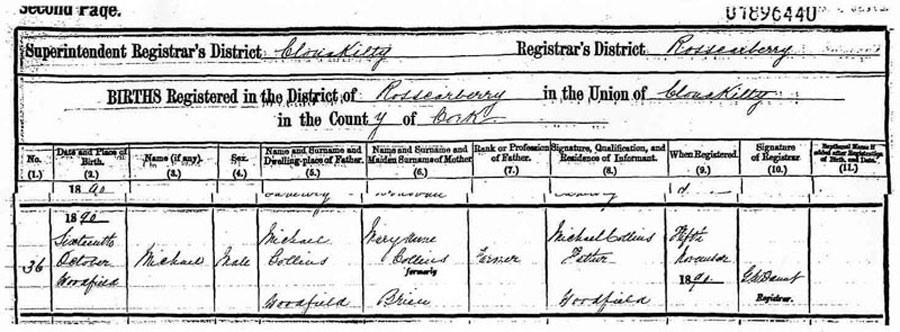 Second Page.
01896440
Superintendent Registrar's District Clonakilty Registrar's District Rosscarberry
BIRTHS Registered in the District of Rosscarberry in the Union of Clonakilty
in the County of Cork
No. Date and Place of Birth. Name (if any). Sex. Name and Surname and Dwelling-place of Father. Name and Surname and Maiden Surname of Mother Rank or Profession of Father. Signature, Qualification, and Residence of Informant. When Registered. Signature of Registrar Baptismal Name if added after Registration of Birth, and Date.
(1.) (2.) (3.) (4.) (5.) (6.) (7.) (8.) (9.) (10.) (11.)
1890
36 1890 Sixteenth October Woodfield Michael Male Michael Collins Woodfield Mary Anne Collins formerly Brien Farmer Michael Collins Father Woodfield Fifth November 1890 Registrar.